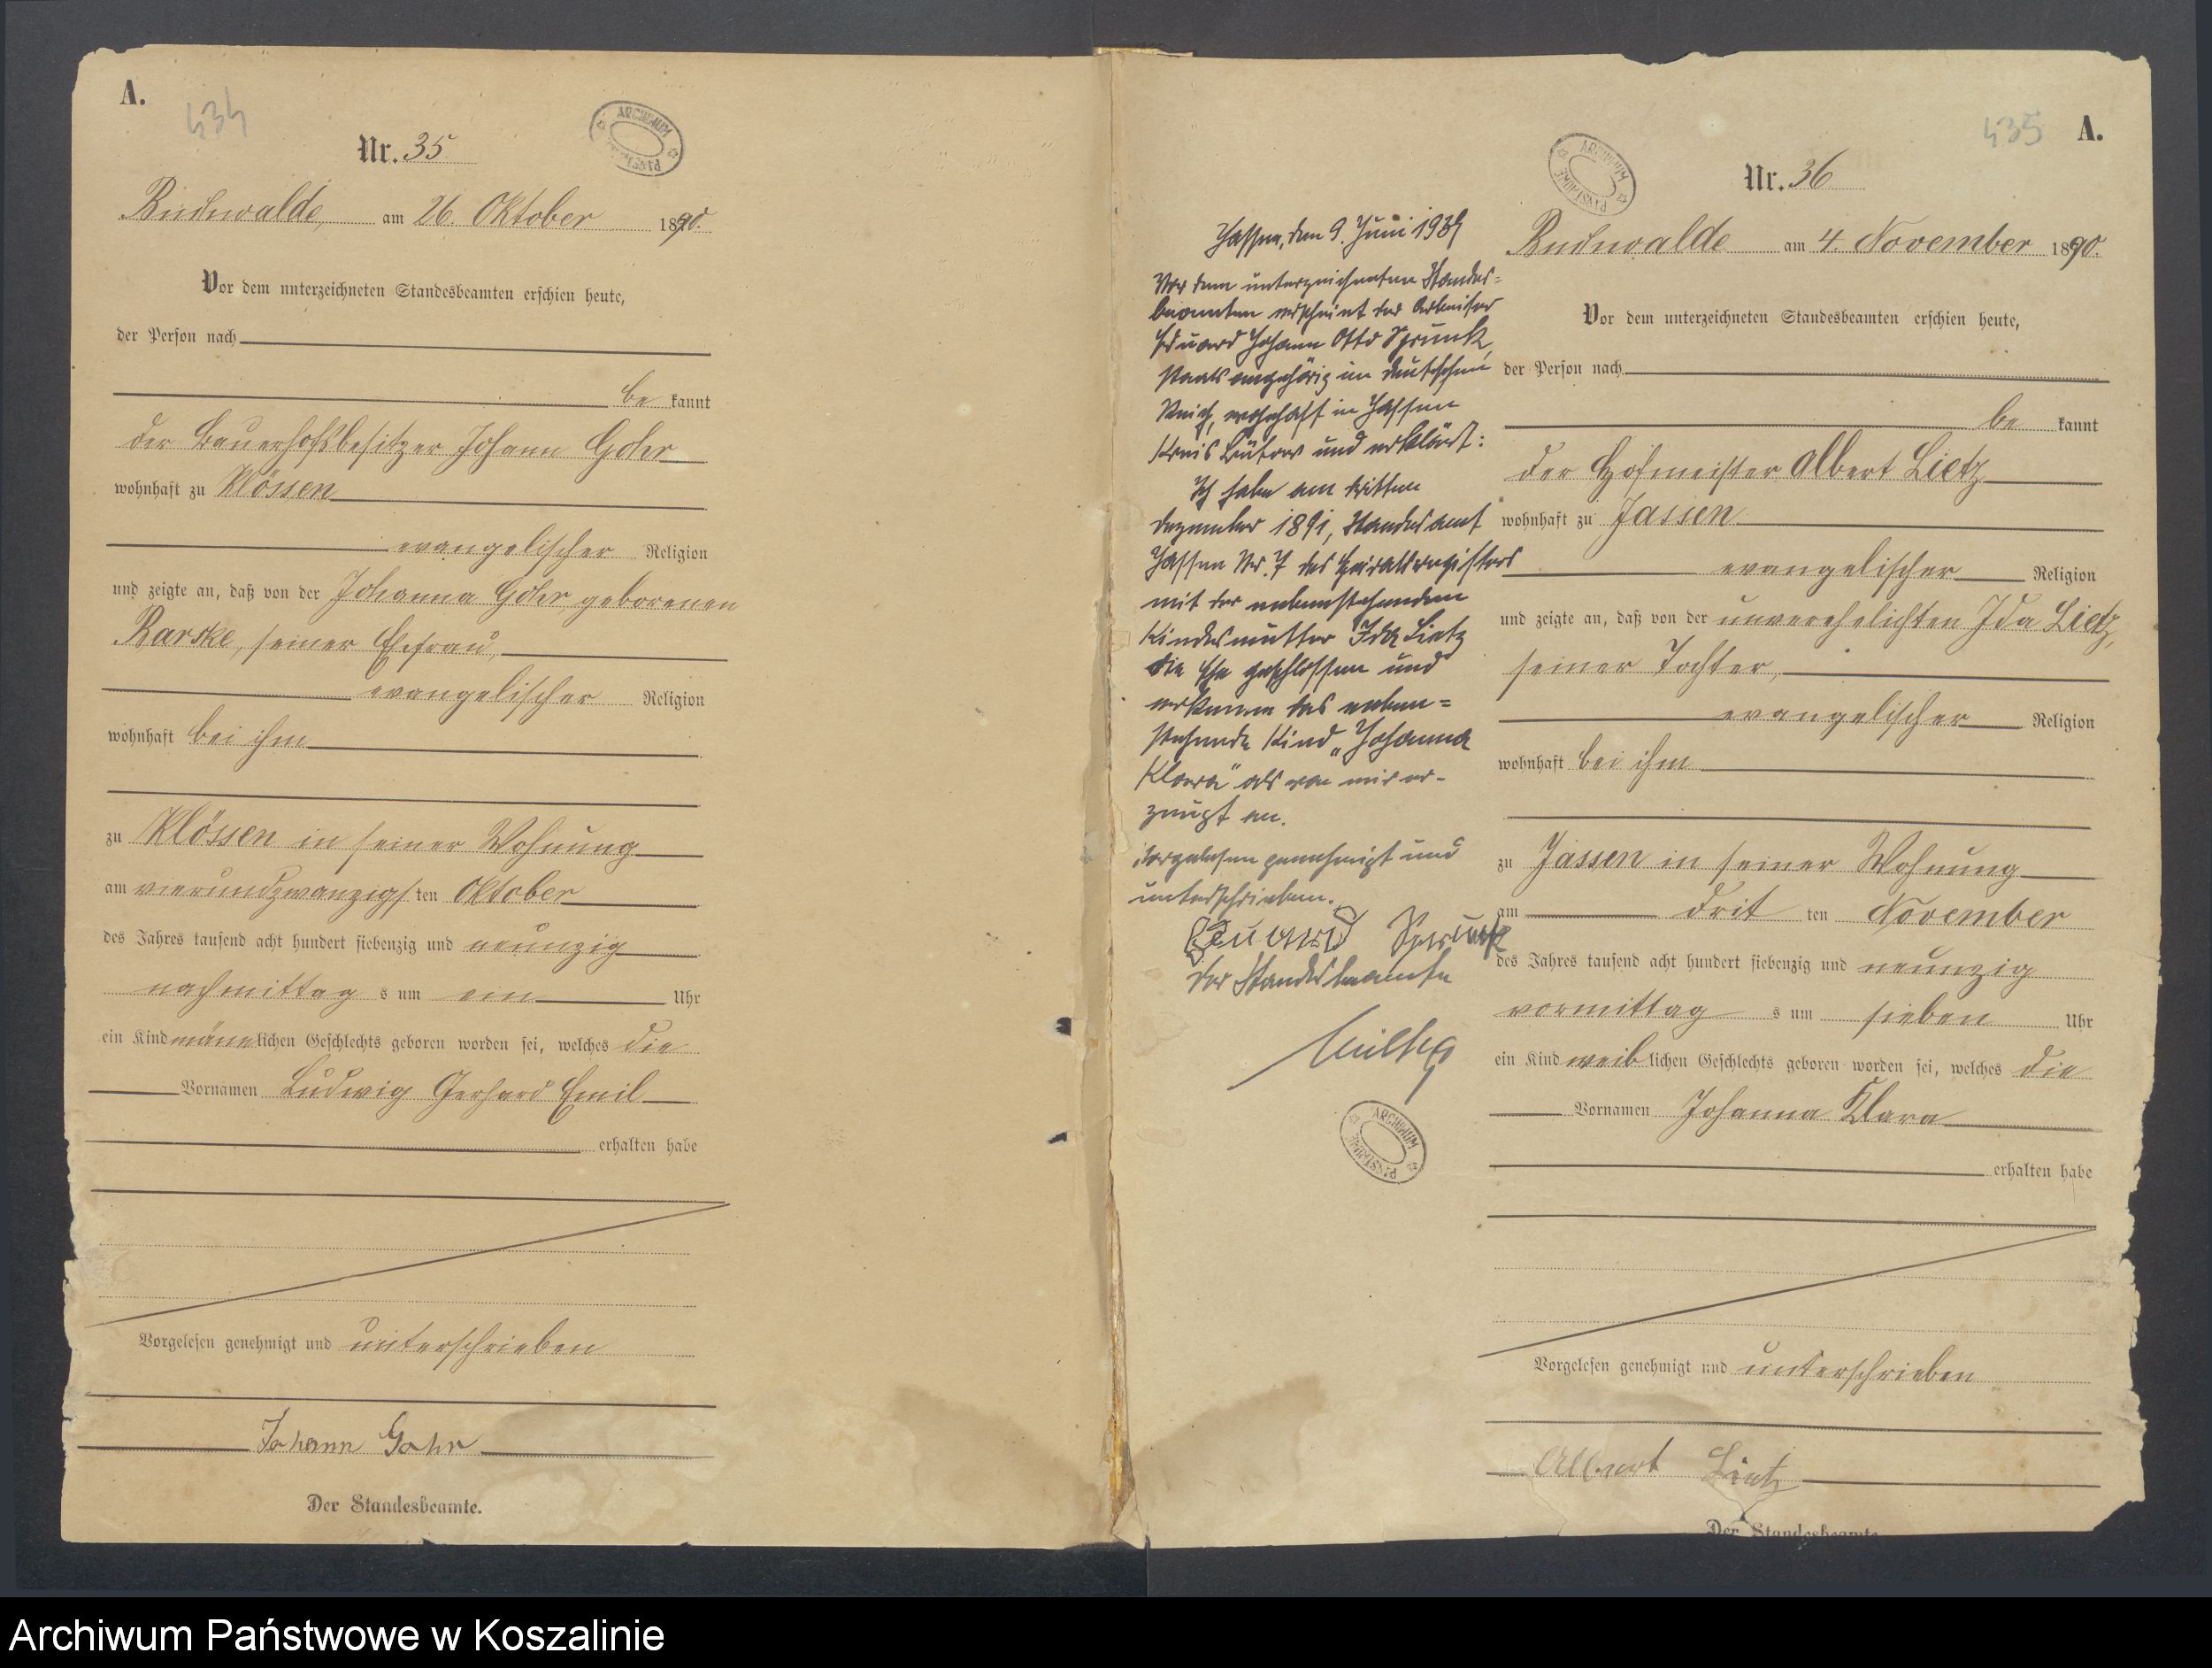 A.
434
ARCHIWUM PAŃSTWOWE
Nr. 35
Buchwalde, am 26. Oktober 1890.
Vor dem unterzeichneten Standesbeamten erschien heute,
der Person nach
be kannt
der Bauerhofsbesitzer Johann Gohr
wohnhaft zu Klössen
evangelischer Religion
und zeigte an, daß von der Johanna Gohr, geborenen
Barske, seiner Ehefrau,
evangelischer Religion
wohnhaft bei ihm
zu Klössen in seiner Wohnung
am vierundzwanzigsten Oktober
des Jahres tausend acht hundert siebenzig und neunzig
nachmittag s um ein Uhr
ein Kind männlichen Geschlechts geboren worden sei, welches die
Vornamen Ludwig Gerhard Emil
erhalten habe
Vorgelesen genehmigt und unterschrieben
Johann Gohr
Der Standesbeamte.
Jassen, den 9. Juni
Vor dem unterzeichneten Standes=
beamten erscheint der Arbeiter
Eduard Johann Otto Sprunk,
staatsangehörig im deutschen
Reich, wohnhaft in Jassen
Kreis Bütow und erklärt:
Ich habe am dritten
Dezember 1891, Standesamt
Jassen Nr. 7 des Heiratsregisters
mit der nebenstehenden
Kindesmutter Ida Lietz
die Ehe geschlossen und
erkenne das neben=
stehende Kind „Johanna
Klara" als von mir er-
zeugt an.
Vorgelesen genehmigt und
unterschrieben.
Eduard Sprunk
Der Standesbeamte
ARCHIWUM PAŃSTWOWE
435
A.
ARCHIWUM PAŃSTWOWE
Nr. 36
Buchwalde am 4. November 1890.
Vor dem unterzeichneten Standesbeamten erschien heute,
der Person nach
be kannt
der Hofmeister Albert Lietz
wohnhaft zu Jassen
evangelischer Religion
und zeigte an, daß von der unverehelichten Ida Lietz,
seiner Tochter,
evangelischer Religion
wohnhaft bei ihm
zu Jassen in seiner Wohnung
am drit ten November
des Jahres tausend acht hundert siebenzig und neunzig
vormittag s um sieben Uhr
ein Kind weiblichen Geschlechts geboren worden sei, welches die
Vornamen Johanna Klara
erhalten habe
Vorgelesen genehmigt und unterschrieben
Albert Lietz
Der Standesbeamte
Archiwum Państwowe w Koszalinie